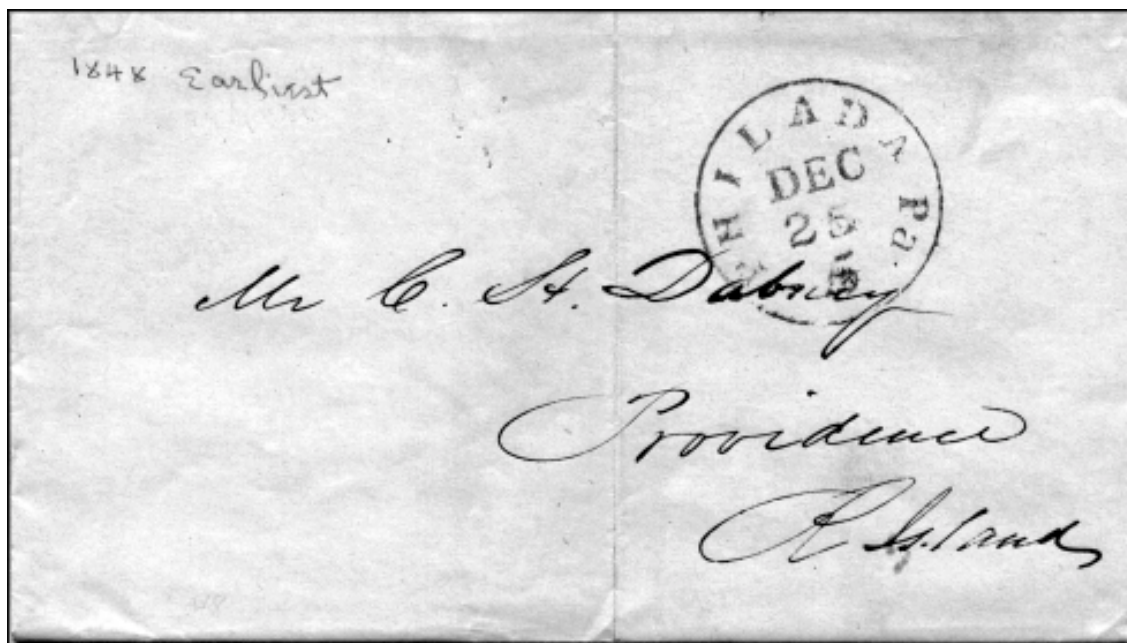 1848 Earliest
PHILADA Pa.
DEC
25
5
Mr C. H. Dabney
Providence
R Island